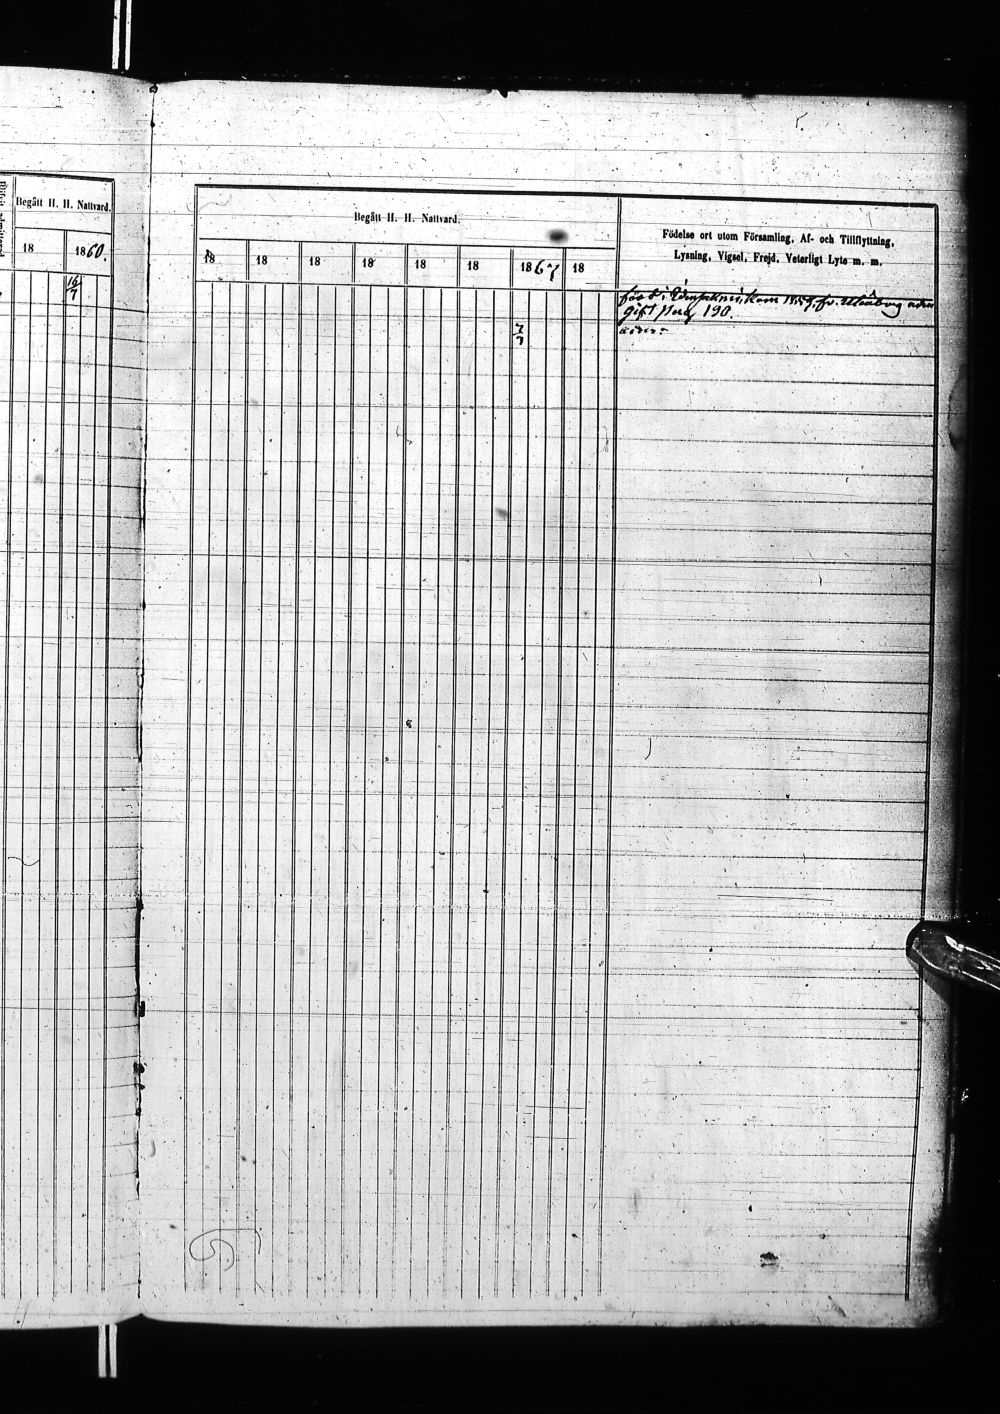 Begått H. H. Nattvard.
18 1860.
16/7
Begått H. H. Nattvard.
18 18 18 18 18 18 1867 18
Födelse ort utom Församling, Af- och Tillflyttning,
Lysning, Vigsel, Frejd, Veterligt Lyte m. m.
född i kom 1859. fr. Uleåborg
gift pag 190.
7/7